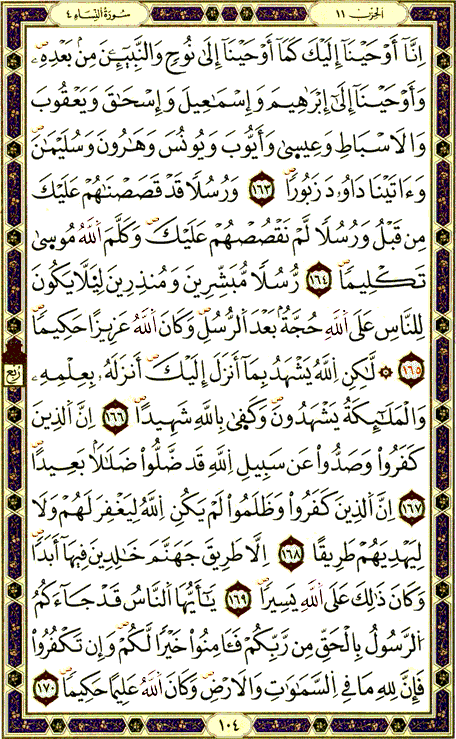 الحزب ١١ سورة النساء ٤
اِنَّآ أَوْحَيْنَآ إِلَيْكَ كَمَآ أَوْحَيْنَآ إِلَىٰ نُوحٍ وَالنَّبِيٓـِٕنَ مِنۢ بَعْدِهِۦ
وَأَوْحَيْنَآ إِلَىٰٓ إِبْرَٰهِيمَ وَإِسْمَٰعِيلَ وَإِسْحَٰقَ وَيَعْقُوبَ
وَالَاسْبَاطِ وَعِيسىٰ وَأَيُّوبَ وَيُونُسَ وَهَٰرُونَ وَسُلَيْمَٰنَ
وَءَاتَيْنَا دَاوُۥدَ زَبُورًا ١٦٣ وَرُسُلًا قَدْ قَصَصْنَٰهُمْ عَلَيْكَ
مِن قَبْلُ وَرُسُلًا لَّمْ نَقْصُصْهُمْ عَلَيْكَ وَكَلَّمَ اَللَّهُ مُوسىٰ
تَكْلِيمًا ١٦٤ رُّسُلًا مُّبَشِّرِينَ وَمُنذِرِينَ لِيَلَّا يَكُونَ
لِلنَّاسِ عَلَى اَللَّهِ حُجَّةٌۢ بَعْدَ اَلرُّسُلِ وَكَانَ اَللَّهُ عَزِيزًا حَكِيمًا
١٦٥ ۞ لَّٰكِنِ اِللَّهُ يَشْهَدُ بِمَآ أَنزَلَ إِلَيْكَ أَنزَلَهُۥ بِعِلْمِهِۦ
وَالْمَلَٰٓئِكَةُ يَشْهَدُونَ وَكَفىٰ بِاللَّهِ شَهِيدًا ١٦٦ اِنَّ اَلذِينَ
كَفَرُوا۟ وَصَدُّوا۟ عَن سَبِيلِ اِللَّهِ قَد ضَّلُّوا۟ ضَلَٰلَۢا بَعِيدًا
١٦٧ اِنَّ اَلذِينَ كَفَرُوا۟ وَظَلَمُوا۟ لَمْ يَكُنِ اِللَّهُ لِيَغْفِرَ لَهُمْ وَلَا
لِيَهْدِيَهُمْ طَرِيقًا ١٦٨ اِلَّا طَرِيقَ جَهَنَّمَ خَٰلِدِينَ فِيهَآ أَبَدًا
وَكَانَ ذَٰلِكَ عَلَى اَللَّهِ يَسِيرًا ١٦٩ يَٰٓأَيُّهَا اَلنَّاسُ قَدْ جَآءَكُمُ
اُلرَّسُولُ بِالْحَقِّ مِن رَّبِّكُمْ فَـَٔامِنُوا۟ خَيْرًا لَّكُمْ وَإِن تَكْفُرُوا۟
فَإِنَّ لِلهِ مَا فِي اِلسَّمَٰوَٰتِ وَالَارْضِ وَكَانَ اَللَّهُ عَلِيمًا حَكِيمًا ١٧٠
ربع
١٠٤